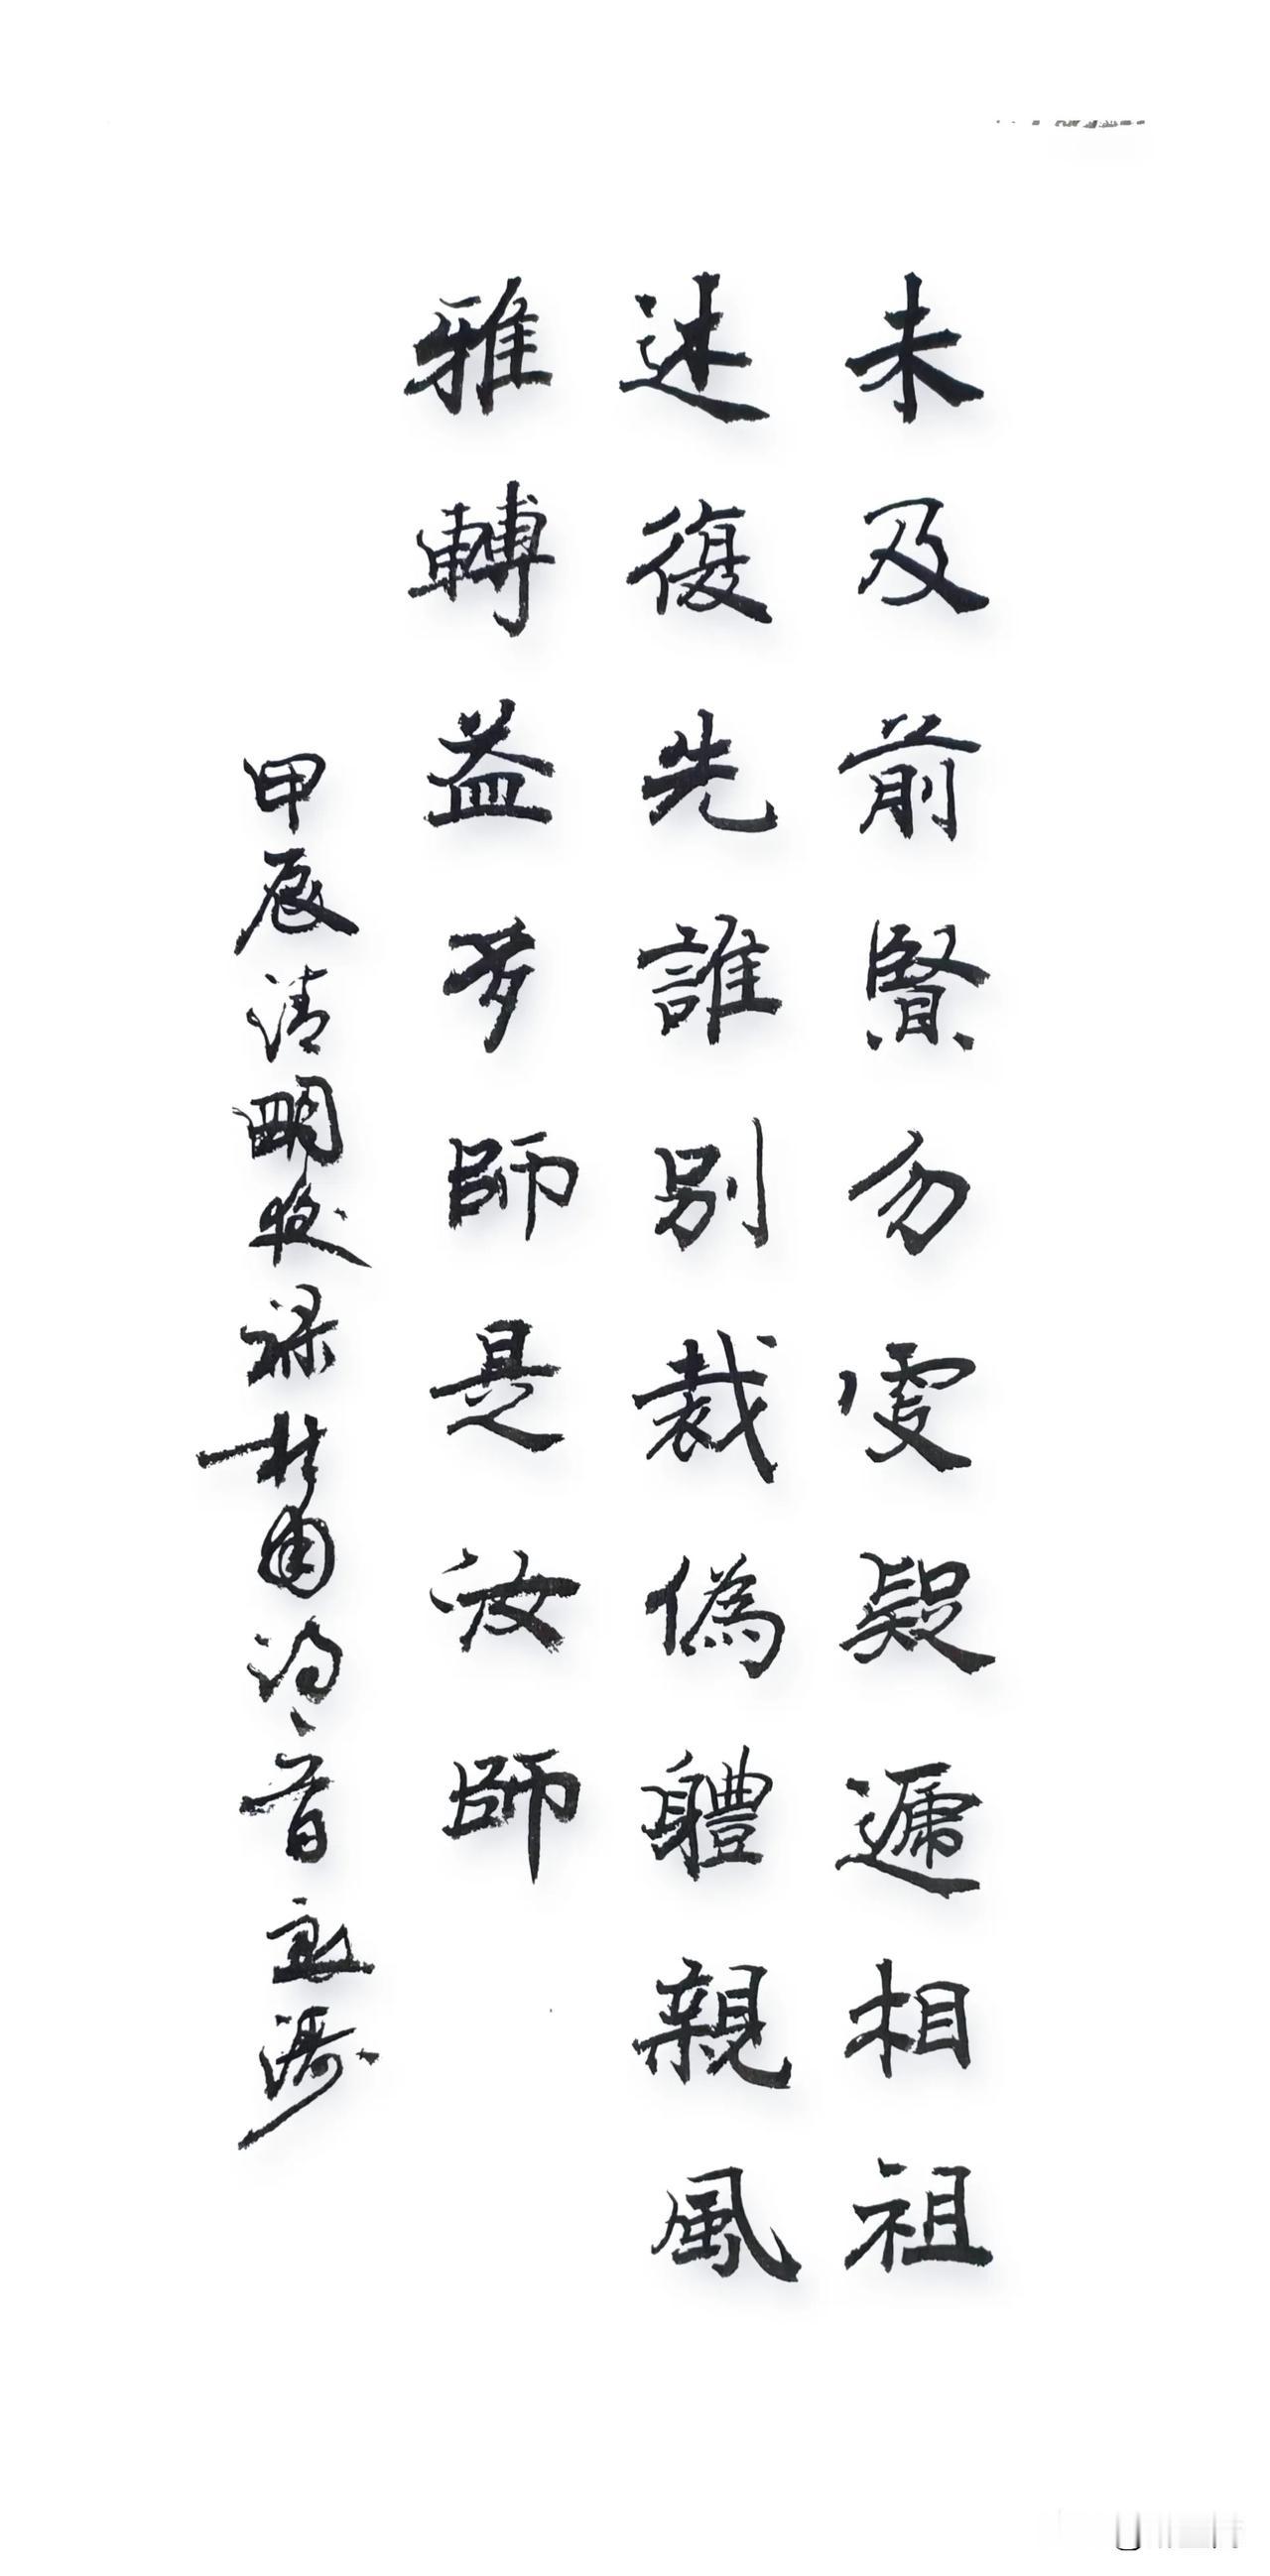 未及前賢勿更疑遞相祖
述復先誰別裁偽體親風
雅轉益多師是汝師
甲辰清明後録杜甫詩一首